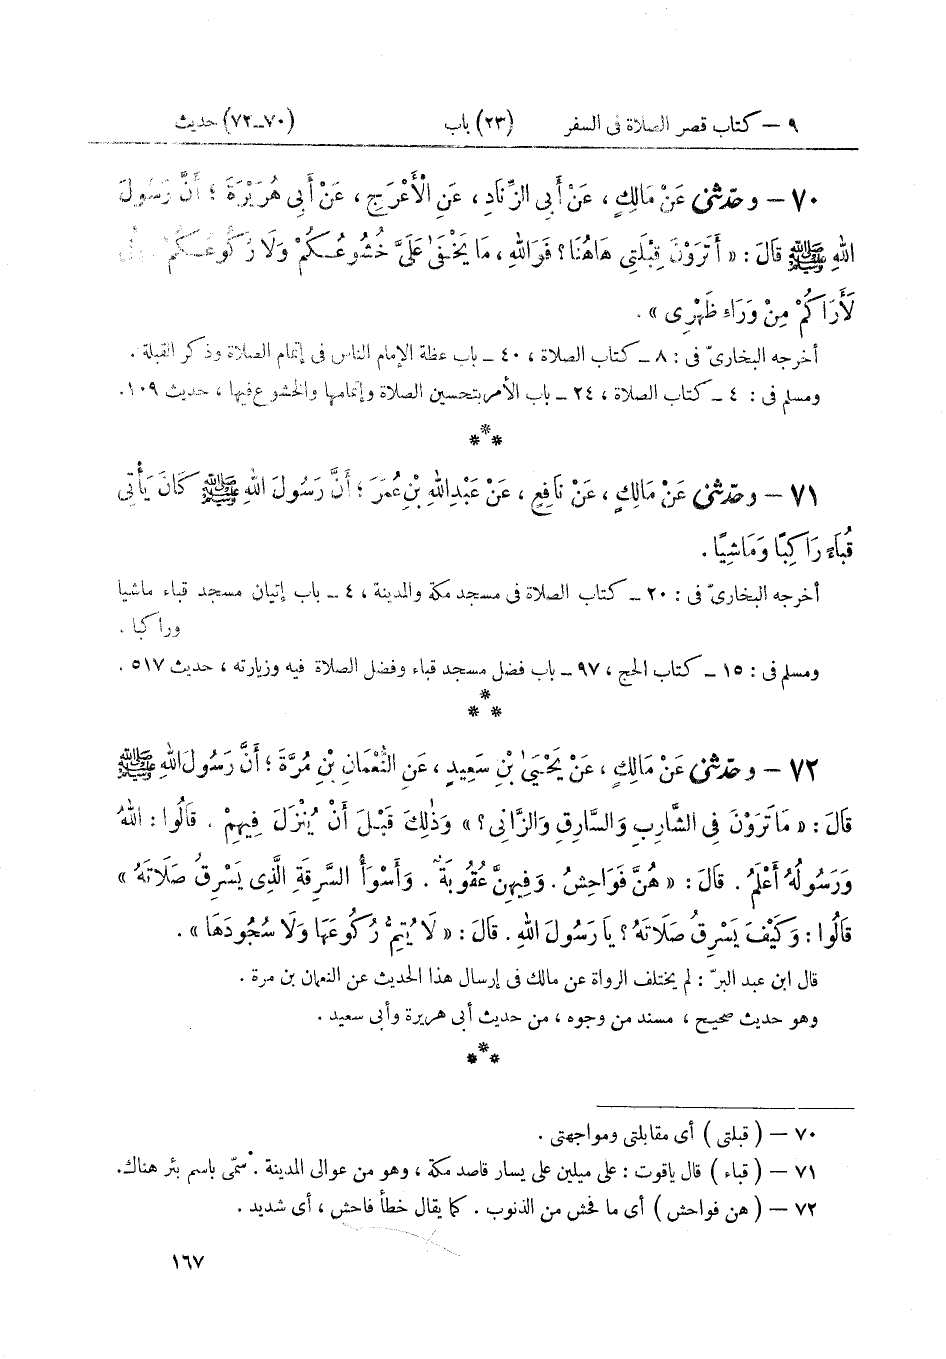 ٩ – كتاب قصر الصلاة فى السفر (٢٣) باب (٧٠–٧٢) حديث
٧٠ – وحدّثنى عَنْ مَالِكٍ ، عَنْ أَبِى الزِّنَادِ ، عَنِ الْأَعْرَجِ ، عَنْ أَبِى هُرَيْرَةَ ؛ أَنَّ رَسُولَ
اللهِ ﷺ قَالَ : « أَتَرَوْنَ قِبْلَتِى هَاهُنَا ؟ فَوَاللهِ ، مَا يَخْفَىٰ عَلَىَّ خُشُوعُكُمْ وَلَا رُكُوعُكُمْ
لَأَرَاكُمْ مِنْ وَرَاءِ ظَهْرِى » .
أخرجه البخارىّ فى : ٨ – كتاب الصلاة ، ٤٠ – باب عظة الإمام الناس فى إتمام الصلاة وذكر القبلة .
ومسلم فى : ٤ – كتاب الصلاة ، ٢٤ – باب الأمر بتحسين الصلاة وإتمامها والخشوع فيها ، حديث ١٠٩ .
***
٧١ – وحدّثنى عَنْ مَالِكٍ ، عَنْ نَافِعٍ ، عَنْ عَبْدِ اللهِ بْنِ عُمَرَ ؛ أَنَّ رَسُولَ اللهِ ﷺ كَانَ يَأْتِى
قُبَاءَ رَاكِبًا وَمَاشِيًا .
أخرجه البخارىّ فى : ٢٠ – كتاب الصلاة فى مسجد مكة والمدينة ، ٤ – باب إتيان مسجد قباء ماشيا
وراكبا .
ومسلم فى : ١٥ – كتاب الحج ، ٩٧ – باب فضل مسجد قباء وفضل الصلاة فيه وزيارته ، حديث ٥١٧ .
***
٧٢ – وحدّثنى عَنْ مَالِكٍ ، عَنْ يَحْيَىٰ بْنِ سَعِيدٍ ، عَنِ النُّعْمَانِ بْنِ مُرَّةَ ؛ أَنَّ رَسُولَ اللهِ ﷺ
قَالَ : « مَا تَرَوْنَ فِى الشَّارِبِ وَالسَّارِقِ وَالزَّانِى ؟ » وَذٰلِكَ قَبْلَ أَنْ يُنْزَلَ فِيهِمْ . قَالُوا : اللهُ
وَرَسُولُهُ أَعْلَمُ . قَالَ : « هُنَّ فَوَاحِشُ . وَفِيهِنَّ عُقُوبَةٌ . وَأَسْوَأُ السَّرِقَةِ الَّذِى يَسْرِقُ صَلَاتَهُ »
قَالُوا : وَكَيْفَ يَسْرِقُ صَلَاتَهُ ؟ يا رَسُولَ اللهِ . قَالَ : « لَا يُتِمُّ رُكُوعَهَا وَلَا سُجُودَهَا » .
قال ابن عبد البرّ : لم يختلف الرواة عن مالك فى إرسال هذا الحديث عن النعمان بن مرة .
وهو حديث صحيح ، مسند من وجوه ، من حديث أبى هريرة وأبى سعيد .
***
٧٠ – ( قبلتى ) أى مقابلتى ومواجهتى .
٧١ – ( قباء ) قال ياقوت : على ميلين على يسار قاصد مكة ، وهو من عوالى المدينة . سمّى باسم بئر هناك .
٧٢ – ( هن فواحش ) أى ما فحش من الذنوب . كما يقال خطأ فاحش ، أى شديد .
١٦٧